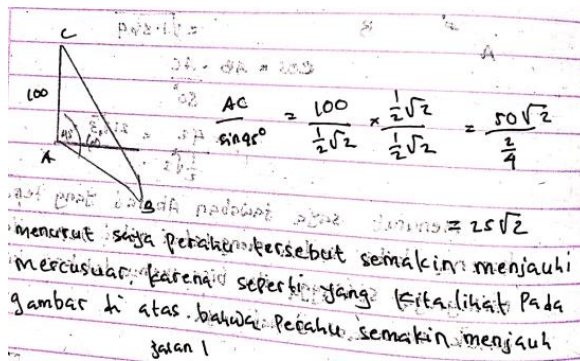 C
100
A
45°
60°
B
AC / sin 45° = 100 / ½√2 × ½√2 / ½√2 = 50√2 / 2/4
= 25√2
menurut saya perahu tersebut semakin menjauhi
mercusuar, karena seperti yang kita lihat Pada
gambar di atas bahwa Perahu semakin menjauh